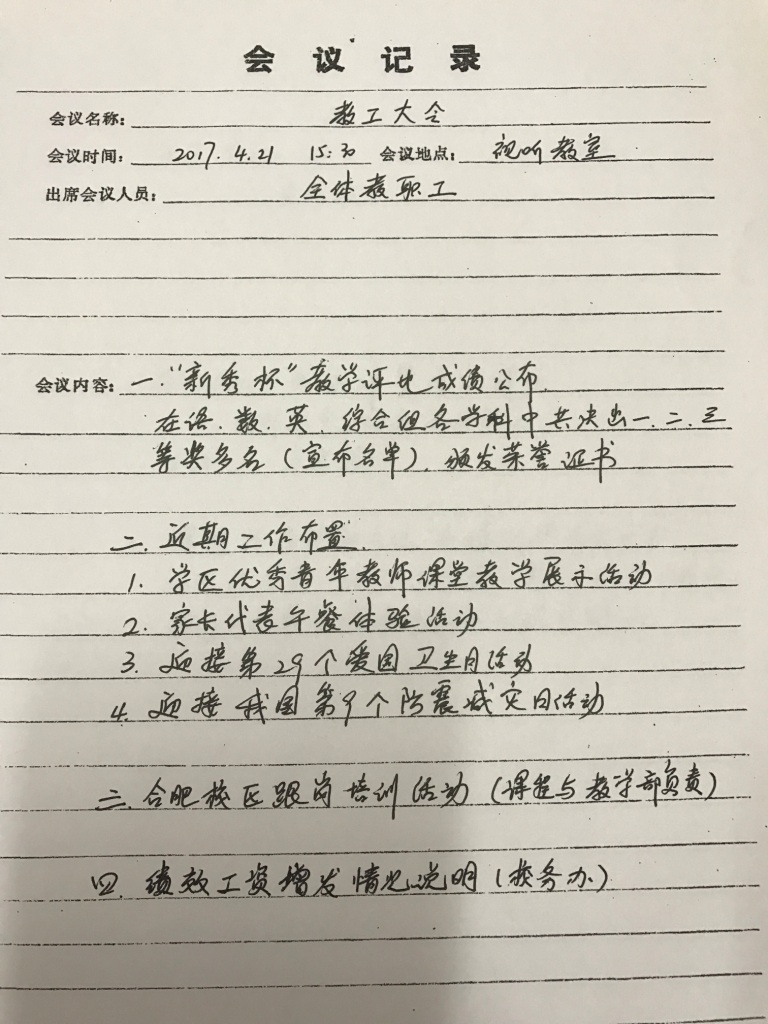 会议记录
会议名称: 教工大会
会议时间: 2017.4.21 15:30 会议地点: 视听教室
出席会议人员: 全体教职工
会议内容: 一."新秀杯"教学评比成绩公布
在语.数.英.综合组各学科中共决出一.二.三
等奖多名(宣布名单).颁发荣誉证书
二.近期工作布置
1.学区优秀青年教师课堂教学展示活动
2.家长代表午餐体验活动
3.迎接第29个爱国卫生月活动
4.迎接我国第9个防震减灾日活动
三.合肥校区跟岗培训活动(课程与教学部负责)
四.绩效工资增发情况说明(校务办)